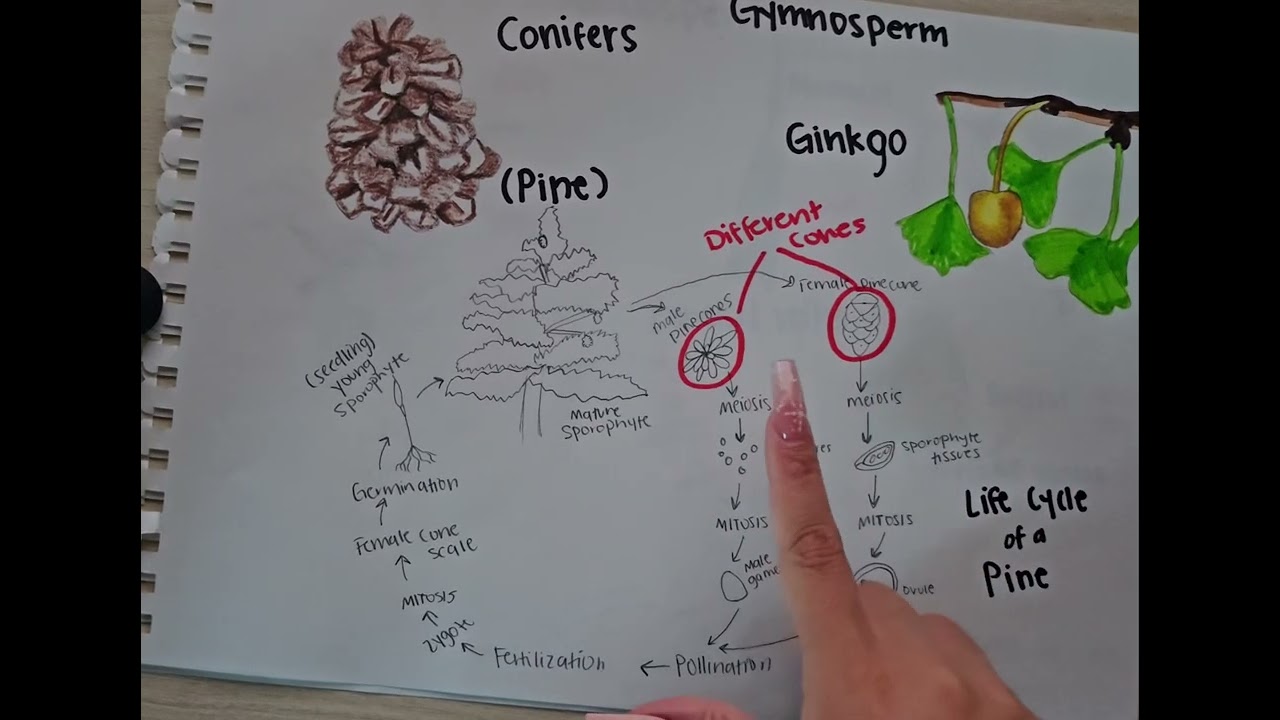 Conifers
Gymnosperm
(Pine)
Ginkgo
Different
cones
male
pinecones
Female pinecone
(seedling)
young
sporophyte
Mature
sporophyte
Meiosis
meiosis
sporophyte
tissues
Germination
Mitosis
Mitosis
Female cone
scale
Male
ovule
Mitosis
zygote
Fertilization
Pollination
Life Cycle
of a
Pine